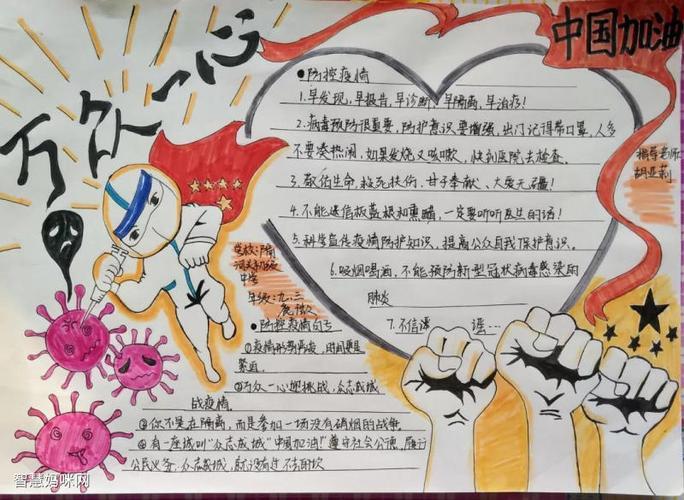 万众一心
中国加油
●防控疫情
1.早发现,早报告,早诊断,早隔离,早治疗!
2.病毒预防很重要,防护意识要增强,出门记得带口罩,人多
不要凑热闹,如果发烧又咳嗽,快到医院去检查。
3.敬佑生命,救死扶伤,甘于奉献、大爱无疆!
4.不能迷信板蓝根和熏醋,一定要听听医生的话!
5.科学宣传疫情防护知识,提高公众自我保护意识。
6.吸烟喝酒,不能预防新型冠状病毒感染的
肺炎
7.不信谣 谣...
指导老师
胡亚莉
学校:
中学
年级:九.三
●防控疫情
①疫情形势严峻,时间就是
②万众一心迎挑战,众志成城
战疫情。
③你不是在隔离,而是参加一场没有硝烟的战争
④有一座城叫"众志成城""中国加油!"遵守社会公德,履行
公民义务,众志成城,就没有过不去的坎
智慧妈咪网